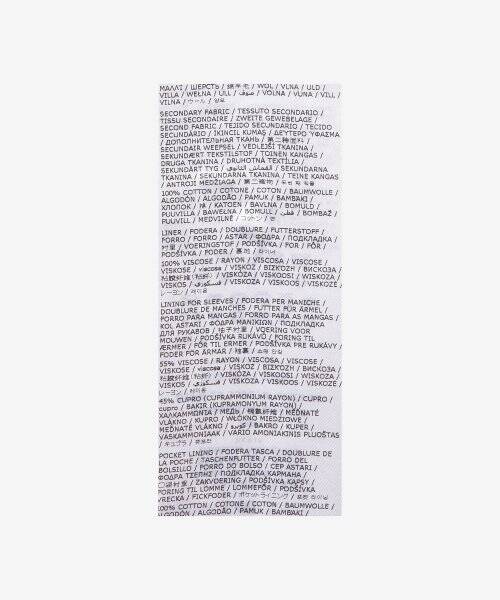 МАЛЛІ / ШЕРСТЬ / 绵羊毛 / WOL / VLNA / ULD /
VILLA / WEŁNA / ULL / صوف / VOLNA / VUNA / VILL /
VILNA / ウール / 양모
SECONDARY FABRIC / TESSUTO SECONDARIO /
TISSU SECONDAIRE / ZWEITE GEWEBELAGE /
SECOND FABRIC / TEJIDO SECUNDARIO / TECIDO
SECUNDÁRIO / İKİNCİL KUMAŞ / ΔΕΥΤΕΡΟ ΥΦΑΣΜΑ
/ ДОПОЛНИТЕЛЬНАЯ ТКАНЬ / 第二种面料 /
SECUNDAIR WEEFSEL / VEDLEJŠÍ TKANINA /
SEKUNDÆRT TEKSTILSTOF / TOINEN KANGAS /
DRUGA TKANINA / DRUHOTNÁ TEXTÍLIA /
SEKUNDÄRT TYG / القماش الثانوي / SEKUNDARNA
TKANINA / SEKUNDARNA TKANINA / TEINE KANGAS
/ ANTROJI MEDŽIAGA / 第二織物 / 두번째 직물
100% COTTON / COTONE / COTON / BAUMWOLLE /
ALGODÓN / ALGODÃO / PAMUK / ΒΑΜΒΑΚΙ /
ХЛОПОК / 棉 / KATOEN / BAVLNA / BOMULD /
PUUVILLA / BAWEŁNA / BOMULL / قطن / BOMBAŽ /
PUUVILL / MEDVILNĖ / コットン / 면
LINER / FODERA / DOUBLURE / FUTTERSTOFF /
FORRO / FORRO / ASTAR / ΦΟΔΡΑ / ПОДКЛАДКА /
衬里 / VOERINGSTOF / PODŠÍVKA / FOR / FÔR /
PODŠÍVKA / FODER / 裏地 / 라이너
100% VISCOSE / RAYON / VISCOSA / VISCOSE /
VISKOSE / viscosa / VISKOZ / ΒΙΣΚΟΖΗ / ВИСКОЗА /
粘胶纤维(粘纤) / VISKÓZA / VISKOOSI / VISKOZA /
VISKOS / فسكوزي / VISKOZA / VISKOOS / VISKOZĖ /
レーヨン / 레이온
LINING FOR SLEEVES / FODERA PER MANICHE /
DOUBLURE DE MANCHES / FUTTER FÜR ÄRMEL /
FORRO PARA MANGAS / FORRO PARA AS MANGAS /
KOL ASTARI / ΦΟΔΡΑ ΜΑΝΙΚΙΩΝ / ПОДКЛАДКА
ДЛЯ РУКАВОВ / 袖子衬里 / VOERING VOOR
MOUWEN / PODŠÍVKA RUKÁVŮ / FORING TIL
ÆRMER / FÔR TIL ERMER / PODŠÍVKA PRE RUKÁVY /
FODER FÖR ÄRMAR / 袖裏 / 소매 안감
55% VISCOSE / RAYON / VISCOSA / VISCOSE /
VISKOSE / viscosa / VISKOZ / ΒΙΣΚΟΖΗ / ВИСКОЗА /
粘胶纤维(粘纤) / VISKÓZA / VISKOOSI / VISKOZA /
VISKOS / فسكوزي / VISKOZA / VISKOOS / VISKOZĖ /
レーヨン / 레이온
45% CUPRO (CUPRAMMONIUM RAYON) / CUPRO /
cupro / BAKIR (KUPRAMONYUM RAYON) /
ΧΑΛΚΑΜΜΩΝΙΑ / МЕДЬ / 铜氨纤维 / MĚĎNATÉ
VLÁKNO / KUPRO / WŁÓKNO MIEDZIOWE /
MEĎNATÉ VLÁKNO / كوبرو / BAKRO / KUPER /
VASKAMMONIAAK / VARIO AMONIAKINIS PLUOŠTAS
/ キュプラ / 큐프라
POCKET LINING / FODERA TASCA / DOUBLURE DE
LA POCHE / TASCHENFUTTER / FORRO DEL
BOLSILLO / FORRO DO BOLSO / CEP ASTARI /
ΦΟΔΡΑ ΤΣΕΠΗΣ / ПОДКЛАДКА КАРМАНА /
口袋衬里 / ZAKVOERING / PODŠÍVKA KAPSY /
FORING TIL LOMME / LOMMEFÔR / PODŠÍVKA
VRECKA / FICKFODER / ポケットライニング / 포켓 라이닝
100% COTTON / COTONE / COTON / BAUMWOLLE /
ALGODÓN / ALGODÃO / PAMUK / ΒΑΜΒΑΚΙ /